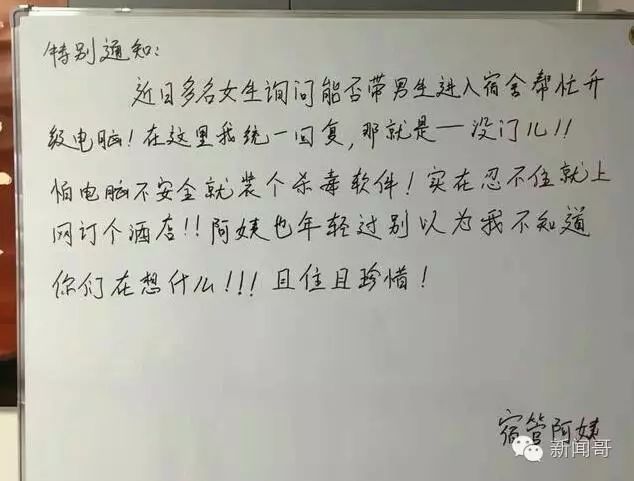 特别通知：
近日多名女生询问能否带男生进入宿舍帮忙升
级电脑！在这里我统一回复，那就是——没门儿！！
怕电脑不安全就装个杀毒软件！实在忍不住就上
网订个酒店！！阿姨也年轻过别以为我不知道
你们在想什么！！！且住且珍惜！
宿管阿姨
新闻哥